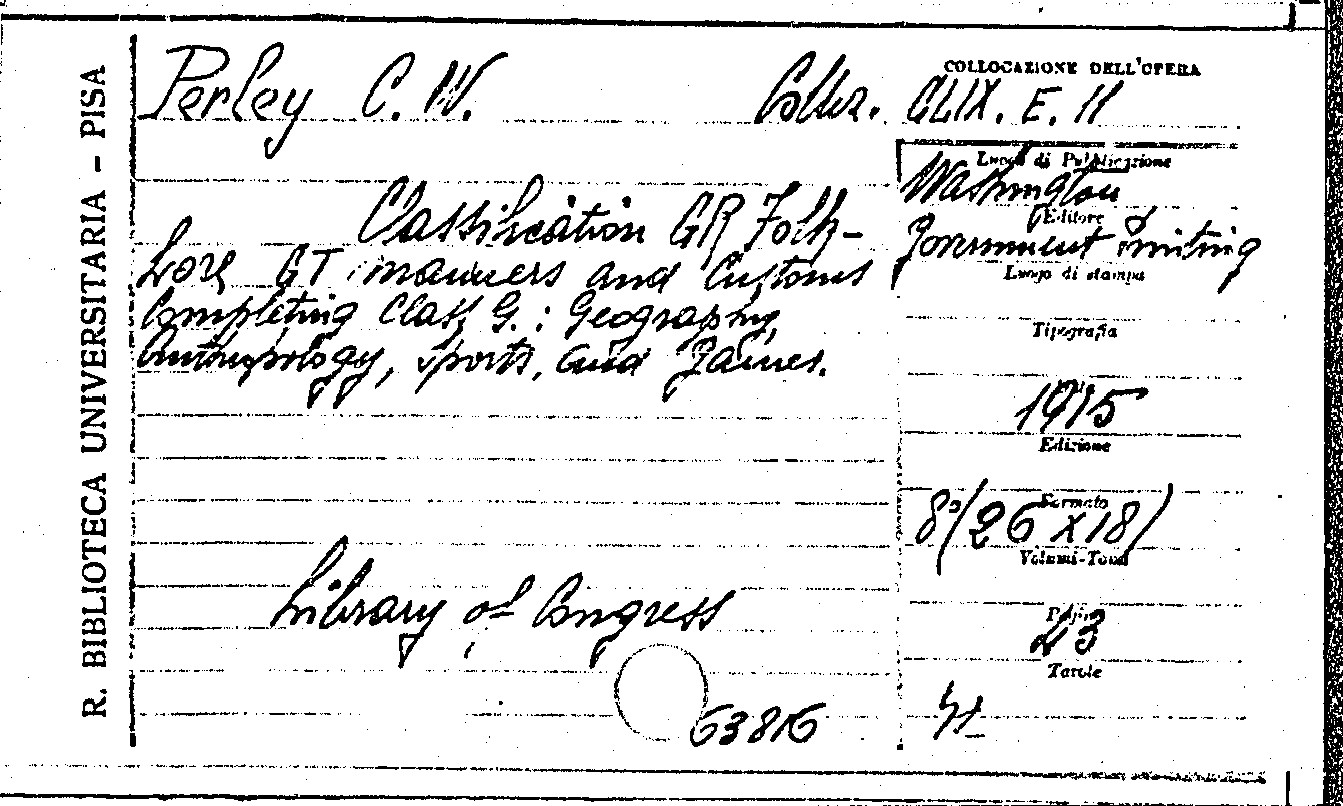 R. BIBLIOTECA UNIVERSITARIA - PISA
Perley C. W.
Collez. CLIX. E. 11
COLLOCAZIONE DELL'OPERA
Classification GR Folk-
Lore GT manners and Customs
Completing Class G. : Geography,
Anthropology, sports, and games.
Library of Congress
63816
Luogo di Pubblicazione
Washington
Editore
Government Printing
Luogo di stampa
Tipografia
1915
Edizione
Formato
8°(26 x 18)
Volumi-Tomi
Pagine
43
Tavole